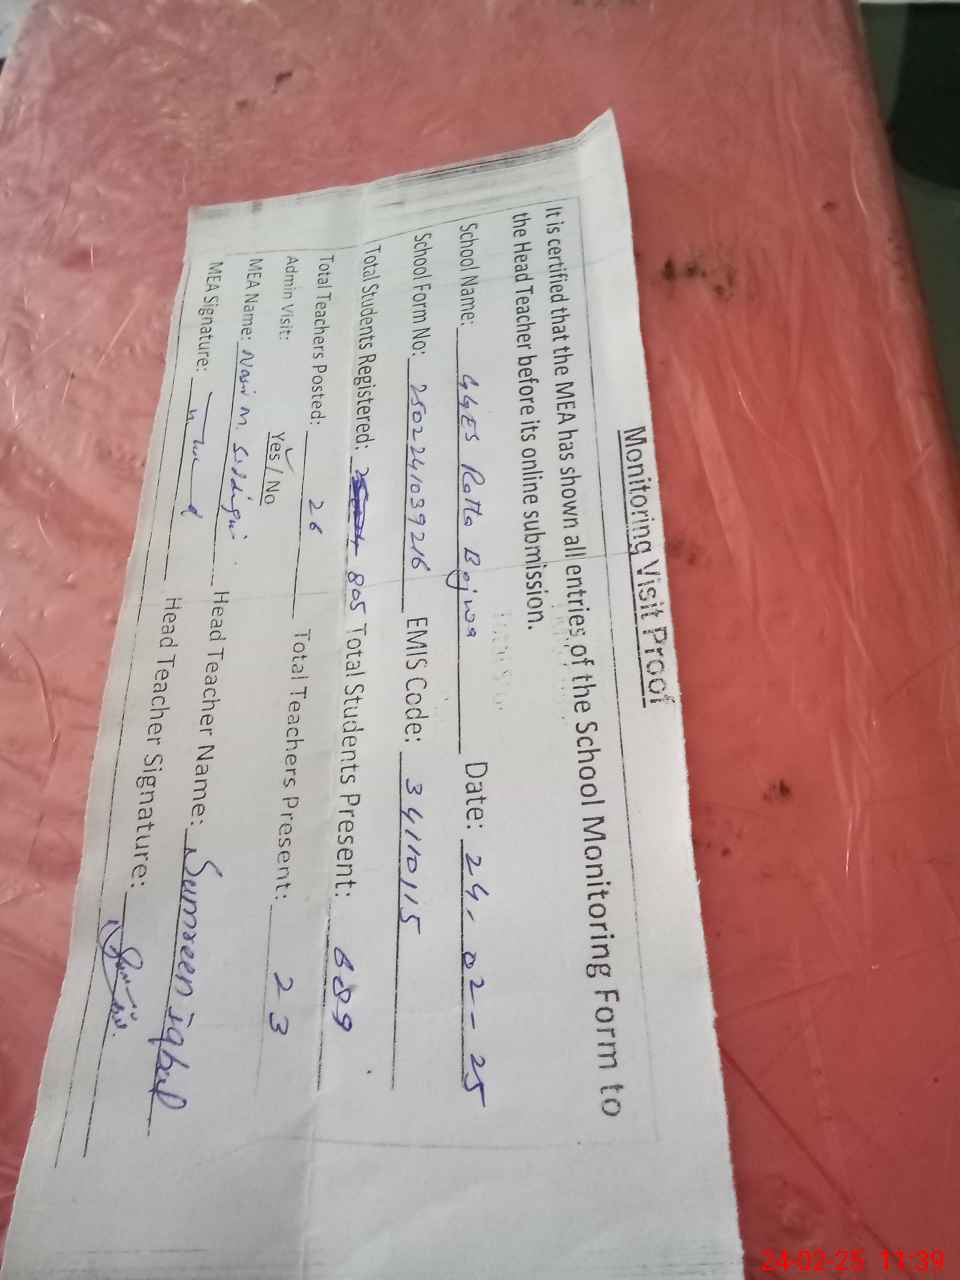 Monitoring Visit Proof
It is certified that the MEA has shown all entries of the School Monitoring Form to
the Head Teacher before its online submission.
School Name: GGES Ratta Bajwa Date: 24-02-25
School Form No: 2502241039216 EMIS Code: 34110115
Total Students Registered: 805 Total Students Present: 689
Total Teachers Posted: 26 Total Teachers Present: 23
Admin Visit: Yes / No
MEA Name: Nasir M. Siddiqui Head Teacher Name: Samreen iqbal
MEA Signature: Head Teacher Signature:
24-02-25 11:39